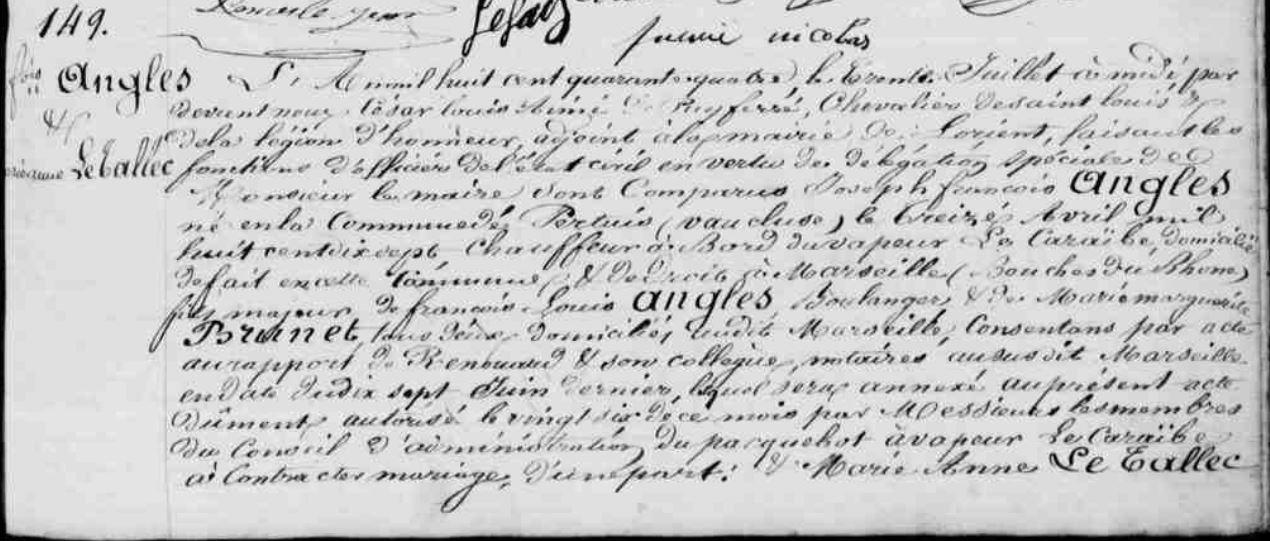 149.
Le
nicolas
Angles
&
Le Tallec
L'An mil huit cent quarante-quatre, le trente Juillet à midi par
devant nous César Louis Aimé de Puyferré, Chevalier de saint louis &
de la légion d'honneur, adjoint à la mairie de Lorient, faisant les
fonctions d'officier de l'état civil en vertu de délégation spéciale de
Monsieur le maire sont Comparus Joseph françois Angles
né en la Commune de Pertuis (vaucluse) le treize Avril mil
huit cent dix sept, Chauffeur à Bord du vapeur Le Caraïbe, domicilié
de fait en cette Commune & de droit à Marseille (Bouches du Rhone)
fils majeur de françois Louis Angles, Boulanger & de Marie marguerite
Brunet, tous deux domiciliés audit Marseille, Consentans par acte
au rapport de Renouard & son collègue, notaires au susdit Marseille
en date du dix sept Juin dernier, lequel sera annexé au présent acte
Dûment autorisé le vingt six de ce mois par Messieurs les membres
du Conseil d'administration du pacquebot à vapeur Le Caraïbe
à Contracter mariage, d'une part: & Marie Anne Le Tallec